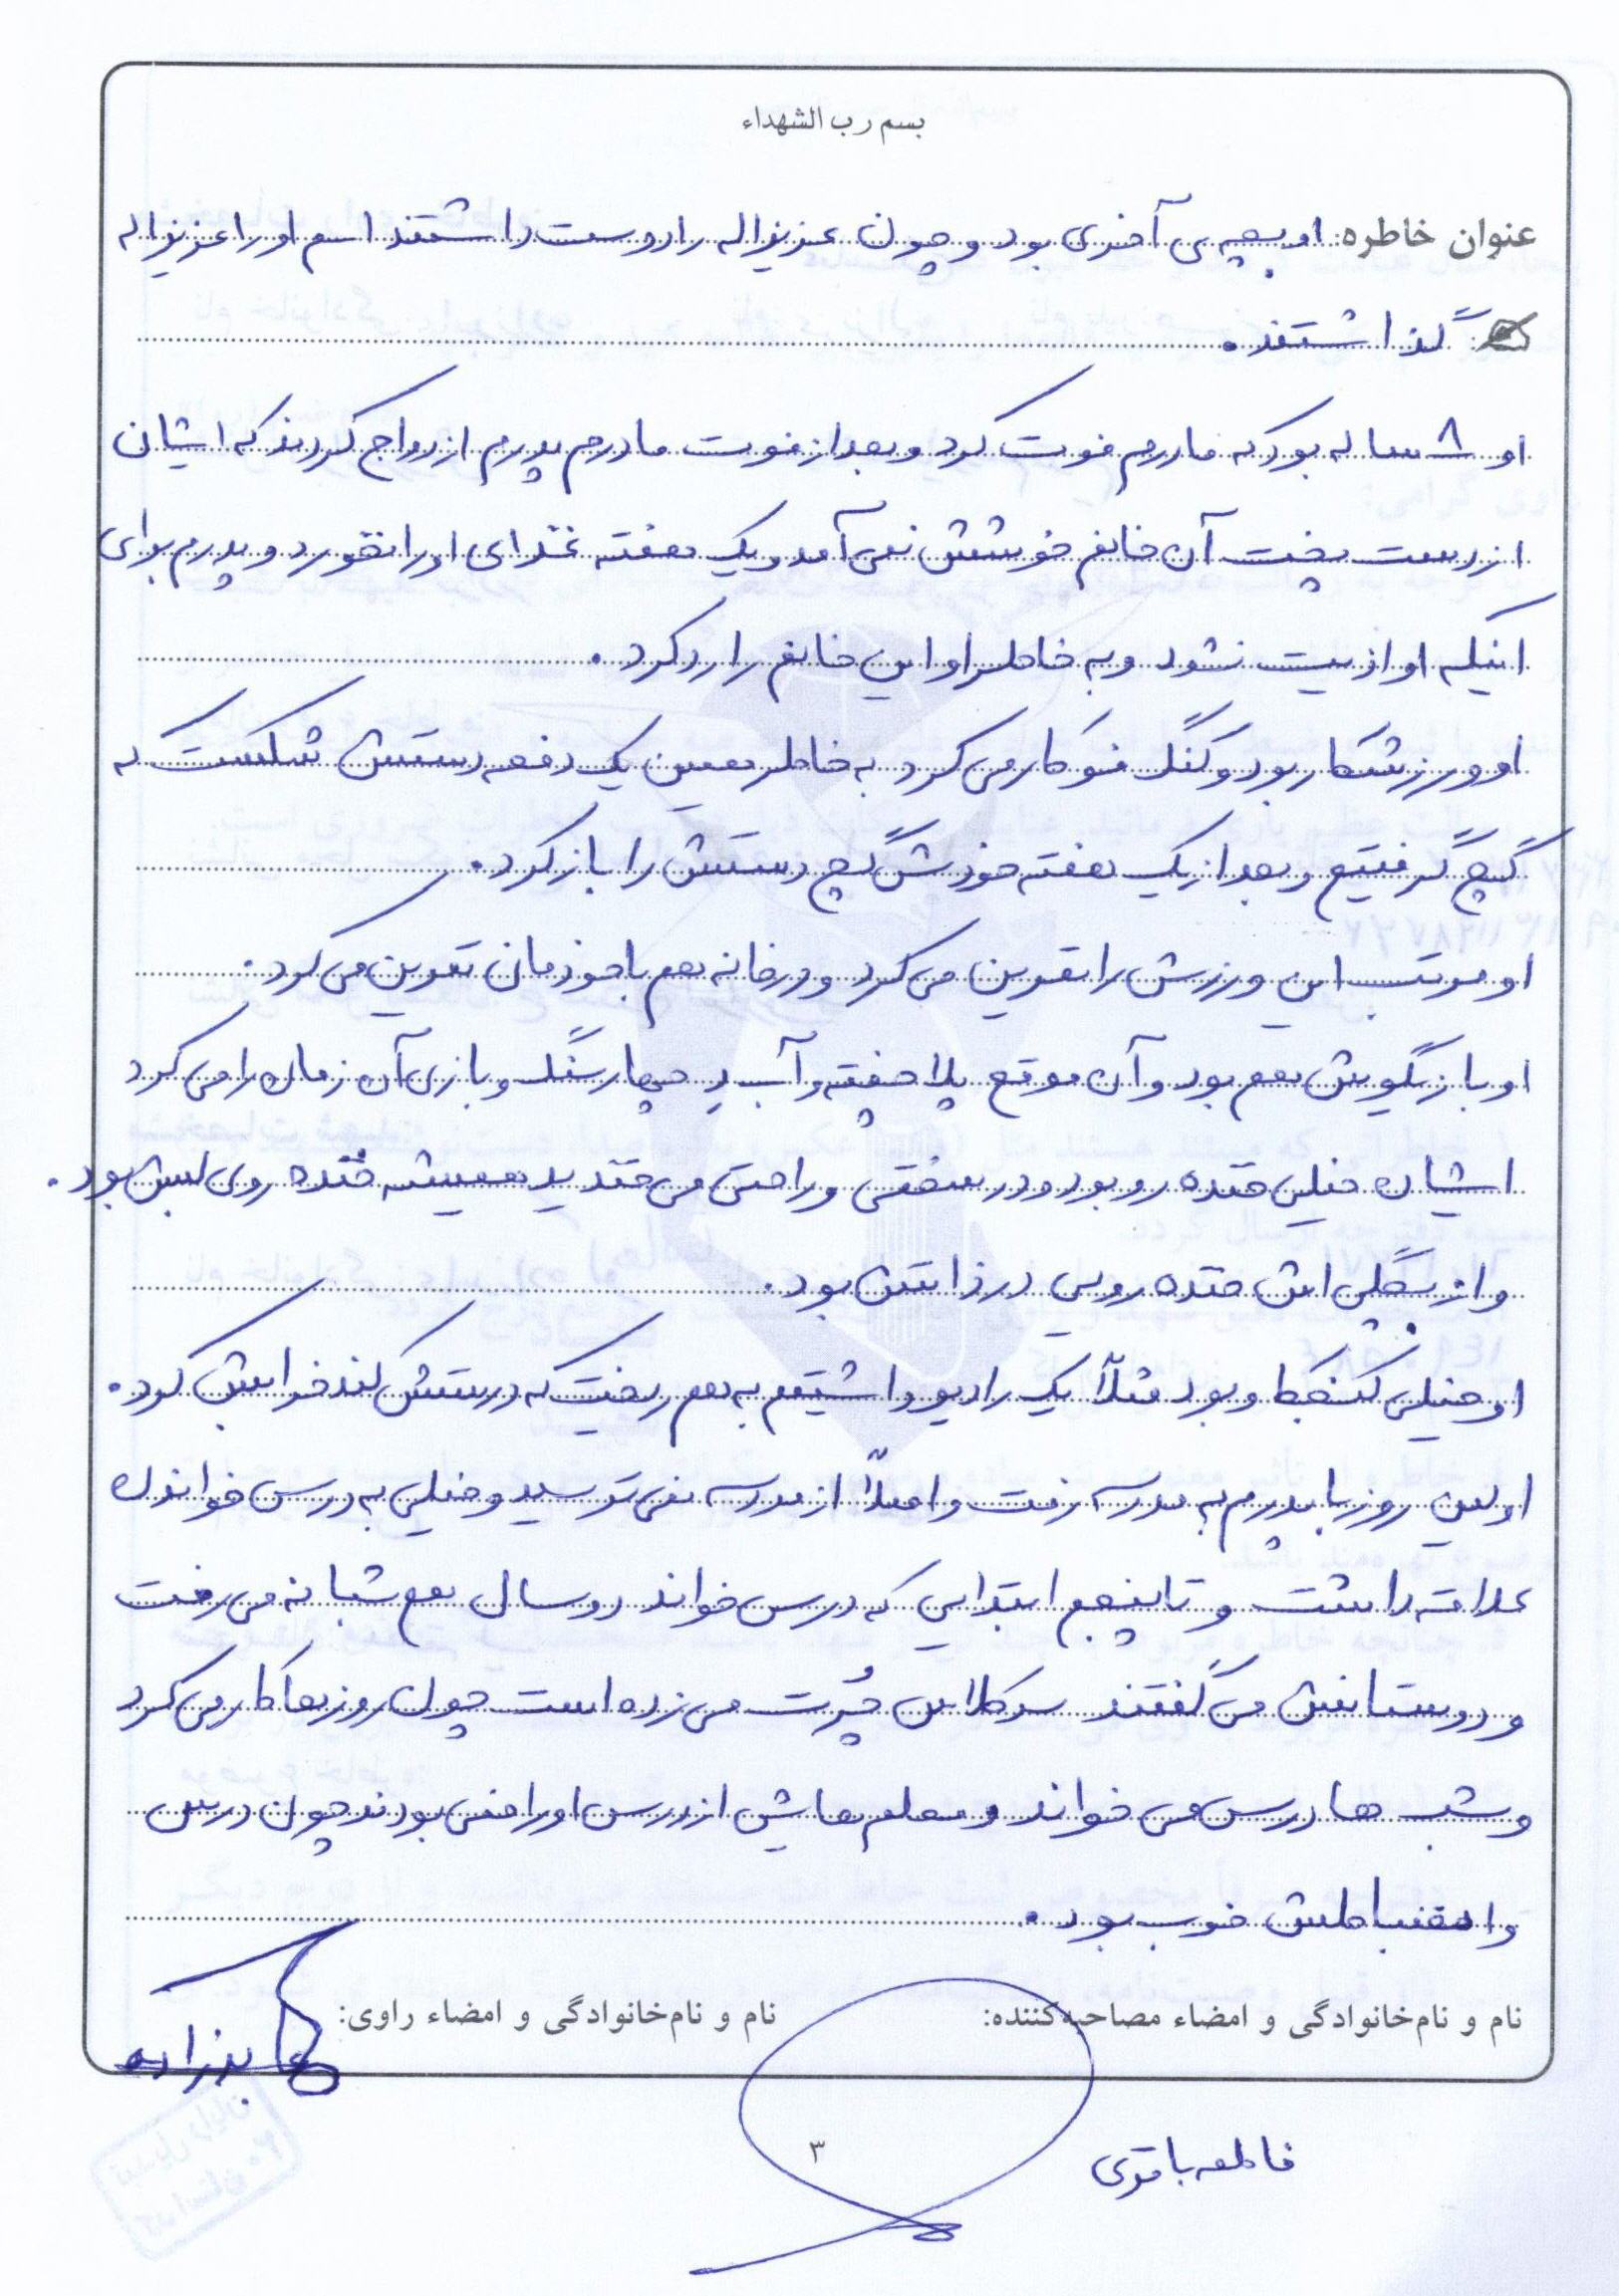 بسم رب الشهداء
عنوان خاطره: او بچه‌ی آخری بود و چون عزیزاله را دوست داشتند اسم او را عزیزاله
گذاشتند.
او ۸ ساله بود که مادرم فوت کرد و بعد از فوت مادرم پدرم ازدواج کردند که ایشان
از دست پخت آن خانم خوشش نمی‌آمد و یک هفته غذای او را نخورد و پدرم برای
اینکه او اذیت نشود و به خاطر او این خانم را رد کرد.
او ورزشکار بود و کنگ فو کار می کرد به خاطر همین یک دفعه دستش شکست که
گچ گرفتیم و بعد از یک هفته خودش گچ دستش را باز کرد.
او مرتب این ورزش را تمرین می کرد و در خانه هم با خودمان تمرین می کرد.
او بازیگوش هم بود و آن موقع پلا چفته و آب و چهار سنگ و بازی آن زمان را می کرد
ایشان خیلی خنده رو بود و در سختی و راحتی می خندید همیشه خنده روی لبش بود.
و از بچگی اش خنده رویی در ذاتش بود.
او خیلی کنجکاو بود مثلاً یک رادیو داشتیم به هم ریخت که درستش کند خرابش کرد.
اولین روز با پدرم به مدرسه رفت و اصلاً از مدرسه نمی ترسید و خیلی به درس خواندن
علاقه داشت و تا پنجم ابتدایی که درس خواند دو سال هم شبانه می رفت
و دوستانش می گفتند سر کلاس چُرت می زده است چون روزها کار می کرد
و شب ها درس می خواند و معلم هایش از درس او راضی بودند چون درس
و انضباطش خوب بود.
نام و نام‌خانوادگی و امضاء مصاحبه‌کننده:
نام و نام‌خانوادگی و امضاء راوی:
عابدزاده
فاطمه باقری
۳